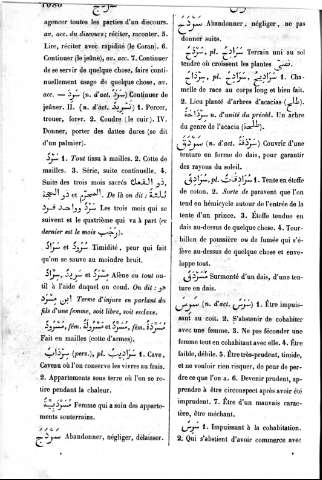 1080
agencer toutes les parties d'un discours.
av. acc. du discours; réciter, raconter. 5.
Lire, réciter avec rapidité (le Coran). 6.
av. acc. Continuer, av. acc. 7. Continuer
de se servir de quelque chose, faire conti-
nuellement usage de quelque chose, av.
acc. — سَرِدَ (n. d'act. سَرَدٌ) Continuer de
jeûner. II. (n. d'act. تَسْرِيدٌ) 1. Percer,
trouer, forer. 2. Coudre (le cuir). IV.
Donner, porter des dattes dures (se dit
d'un palmier).
سَرْدٌ 1. Tout tissu à mailles. 2. Cotte de
mailles. 3. Série, suite continuelle. 4.
Suite des trois mois sacrés ذو القعدة
ذو الحجة. De là on dit: ثلاثة
سرد وواحد فرد Les trois mois qui se
suivent et le quatrième qui va à part (ce
dernier est le mois رجب).
Timidité, peur qui fait
qu'on se sauve au moindre bruit.
سِرَادٌ, سَرِيدٌ Alène ou tout ou-
til à l'aide duquel on coud. On dit: هو
ابن مسرد Terme d'injure en parlant du
fils d'une femme, soit libre, soit esclave.
مَسْرُودٌ, fém. مَسْرُودَةٌ, fém. مُسَرَّدَةٌ
Fait en mailles (cotte d'armes).
سِرْدَابٌ (pers.), pl. سَرَادِيبُ 1. Cave,
Caveau où l'on conserve les vivres au frais.
2. Appartements sous terre où l'on se re-
tire pendant la chaleur.
Femme qui a soin des apparte-
ments souterrains.
سَرْدَجَ Abandonner, négliger, délaisser.
سَرْدَحَ Abandonner, négliger, ne pas
donner suite.
سِرْدَاحٌ, pl. سَرَادِحُ Terrain uni au sol
tendre où croissent les plantes
سِرْدَاحٌ, pl. سَرَادِيحُ 1. Cha-
melle de race au corps long et bien fait.
2. Lieu planté d'arbres d'acacias (طلح).
سِرْدَاحَةٌ n. d'unité du précéd. Un arbre
du genre de l'acacia (طلحة).
سَرْدَقَ (n. d'act. سَرْدَقَةٌ) Couvrir d'une
tenture en forme de dais, pour garantir
des rayons du soleil.
سُرَادِقٌ, pl. سُرَادِقَاتٌ 1. Tente en étoffe
de coton. 2. Sorte de paravent que l'on
tend en hémicycle autour de l'entrée de la
tente d'un prince. 3. Étoffe tendue en
dais au-dessus de quelque chose. 4. Tour-
billon de poussière ou de fumée qui s'é-
lève au-dessus de quelque chose et enve-
loppe tout.
مُسَرْدَقٌ Surmonté d'un dais, d'une ten-
ture en dais.
سَرِسَ (n. d'act. سَرَسٌ) 1. Être impuis-
sant au coït. 2. S'abstenir de cohabiter
avec une femme. 3. Ne pas féconder une
femme tout en cohabitant avec elle. 4. Être
faible, débile. 5. Être très-prudent, timide,
et ne vouloir rien risquer, de peur de per-
dre ce que l'on a. 6. Devenir prudent, ap-
prendre à être circonspect après avoir été
imprudent. 7. Être d'un mauvais carac-
tère, être méchant.
سَرِسٌ 1. Impuissant à la cohabitation.
2. Qui s'abstient d'avoir commerce avec